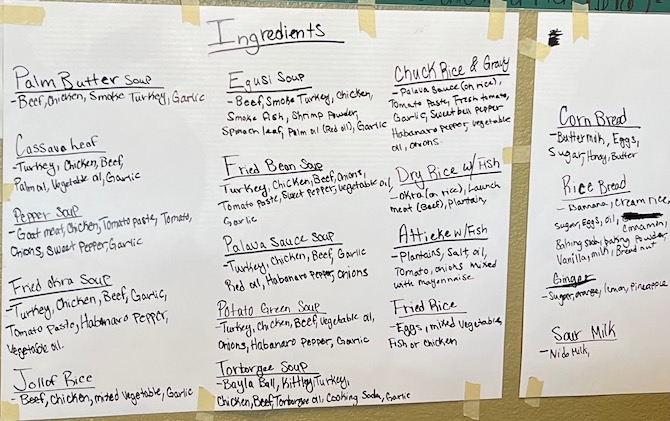 Ingredients
Palm Butter Soup
-Beef, Chicken, Smoke Turkey, Garlic
Cassava Leaf
-Turkey, Chicken, Beef,
Palm oil, Vegetable oil, Garlic
Pepper Soup
-Goat meat, Chicken, Tomato paste, Tomato,
Onions, Sweet Pepper, Garlic
Fried Okra Soup
-Turkey, Chicken, Beef, Garlic,
Tomato Paste, Habanaro Pepper,
Vegetable oil.
Jollof Rice
-Beef, Chicken, mixed vegetable, Garlic
Egusi Soup
-Beef, Smoke Turkey, Chicken,
Smoke fish, Shrimp Powder,
Spinach leaf, Palm oil (Red oil), Garlic
Fried Bean Soup
Turkey, Chicken, Beef, Onions,
Tomato paste, Sweet pepper, Vegetable oil,
Garlic
Palava Sauce Soup
-Turkey, Chicken, Beef, Garlic
Red oil, Habanaro Pepper, Onions
Potato Green Soup
-Turkey, Chicken, Beef, Vegetable oil,
Onions, Habanaro Pepper, Garlic
Torborgee Soup
-Bayla Ball, Kittley, Turkey,
Chicken, Beef, Torborgee oil, Cooking Soda, Garlic
Chuck Rice & Gravy
-Palava Sauce (on rice),
Tomato Paste, Fresh tomato,
Garlic, Sweet bell pepper
Habanaro pepper, vegetable
oil, onions.
Dry Rice w/ Fish
-Okra (on rice), Launch
meat (Beef), Plantain,
Attieke w/ Fish
-Plantains, Salt, oil,
Tomato, onions mixed
with mayonnaise.
Fried Rice
-Eggs, mixed vegetables,
Fish or chicken
Corn Bread
-Buttermilk, Eggs,
Sugar, Honey, Butter
Rice Bread
-Bannana, Cream rice,
Sugar, Eggs, oil,
Cinnamin,
Baking soda, baking powder
Vanilla, milk, Bread nut
Ginger
-Sugar, orange, lemon, Pineapple
Sour Milk
-Nido Milk,